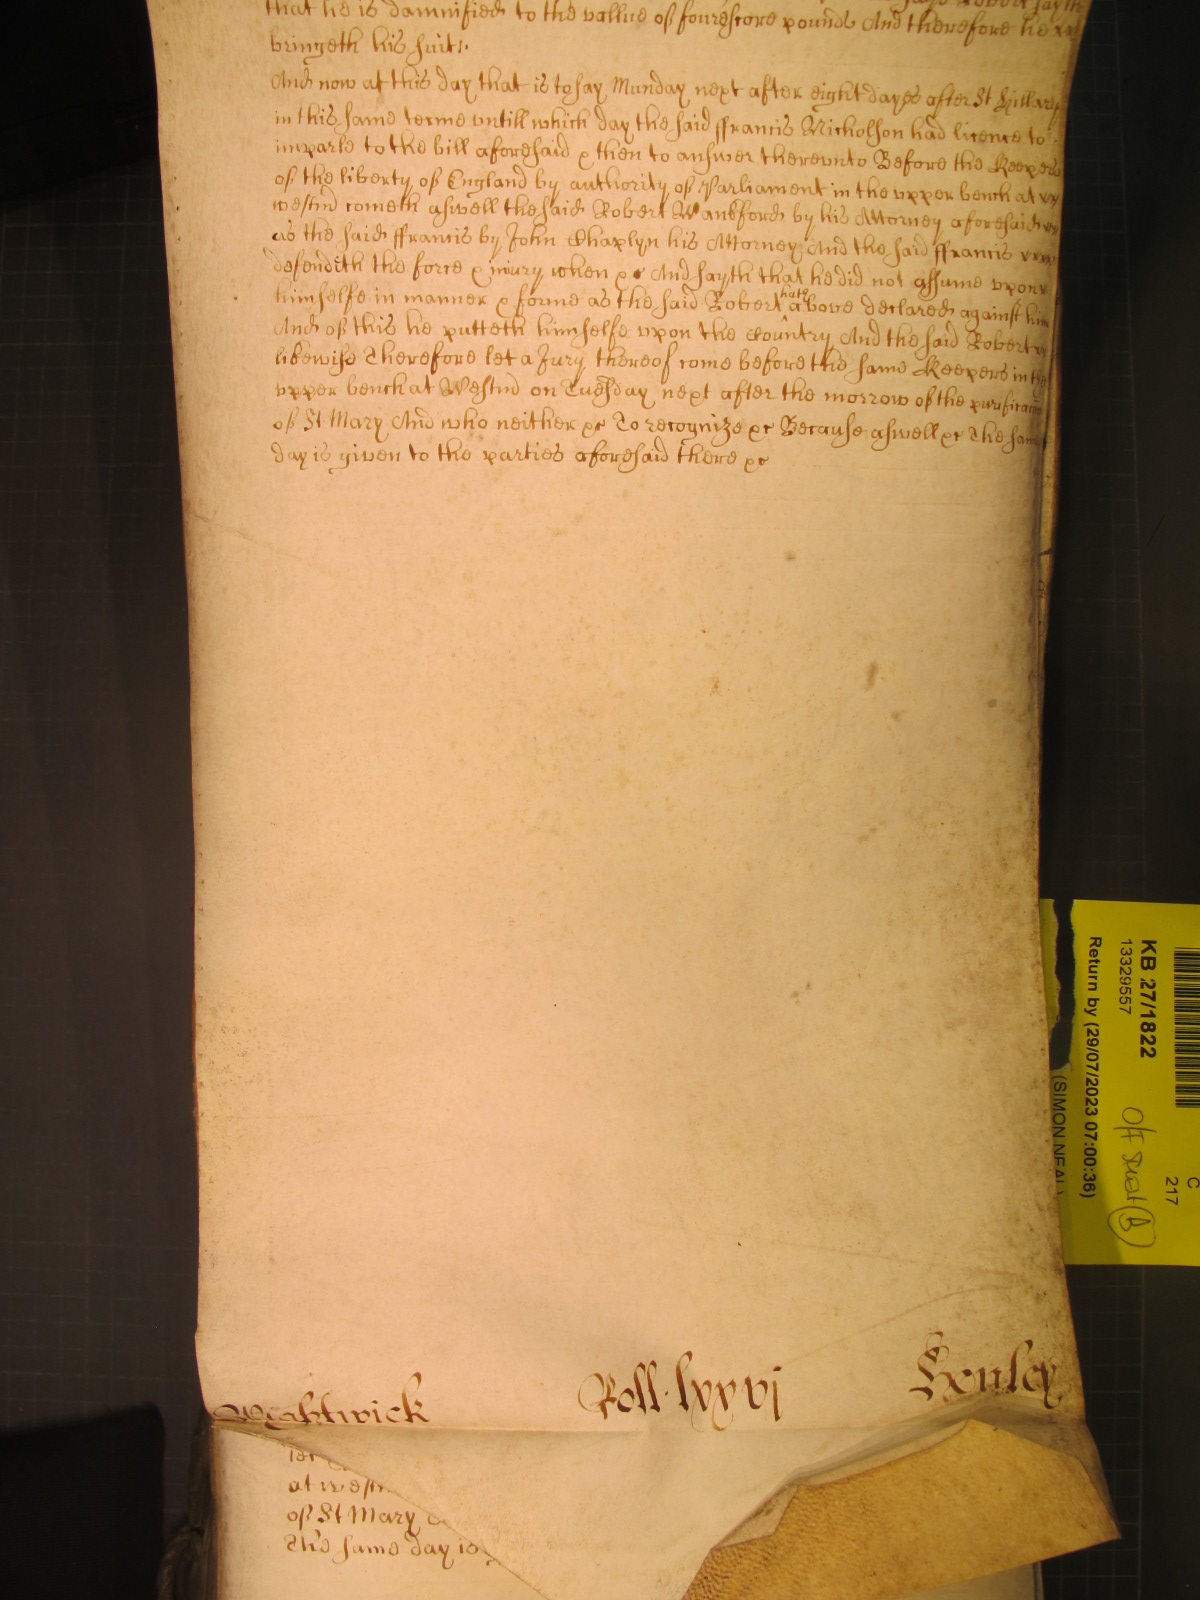 that he is damnified to the vallue of fourescore pounds And therefore he xx
bringeth his suit.
And now at this day that is to say Munday next after eight dayes after St Hillary
in this same terme untill which day the said ffrancis Nicholson had licence to
imparle to the bill aforesaid & then to answer thereunto Before the Keepers
of the liberty of England by authority of Parliament in the upper bench at xx
westm cometh aswell the said Robert Wankford by his Attorney aforesaid xx
as the said ffrancis by John Chaplyn his Attorney And the said ffrancis xxxx
defendeth the force & iniury when &c And sayth that he did not assume upon
himselfe in manner & forme as the said Robert hath above declared against him
And of this he putteth himselfe upon the Country And the said Robert xx
likewise Therefore let a Jury thereof come before the same Keepers in the
upper bench at Westm on Tuesday next after the morrow of the purificacon
of St Mary And who neither &c To recognize &c Because aswell &c The same
day is given to the parties aforesaid there &c
Wightwick Roll lxxvj
at westm
of St Mary
The same day is
KB 27/1822
13329557
Return by (29/07/2023 07:00:36)
(SIMON NEAL)
C
217